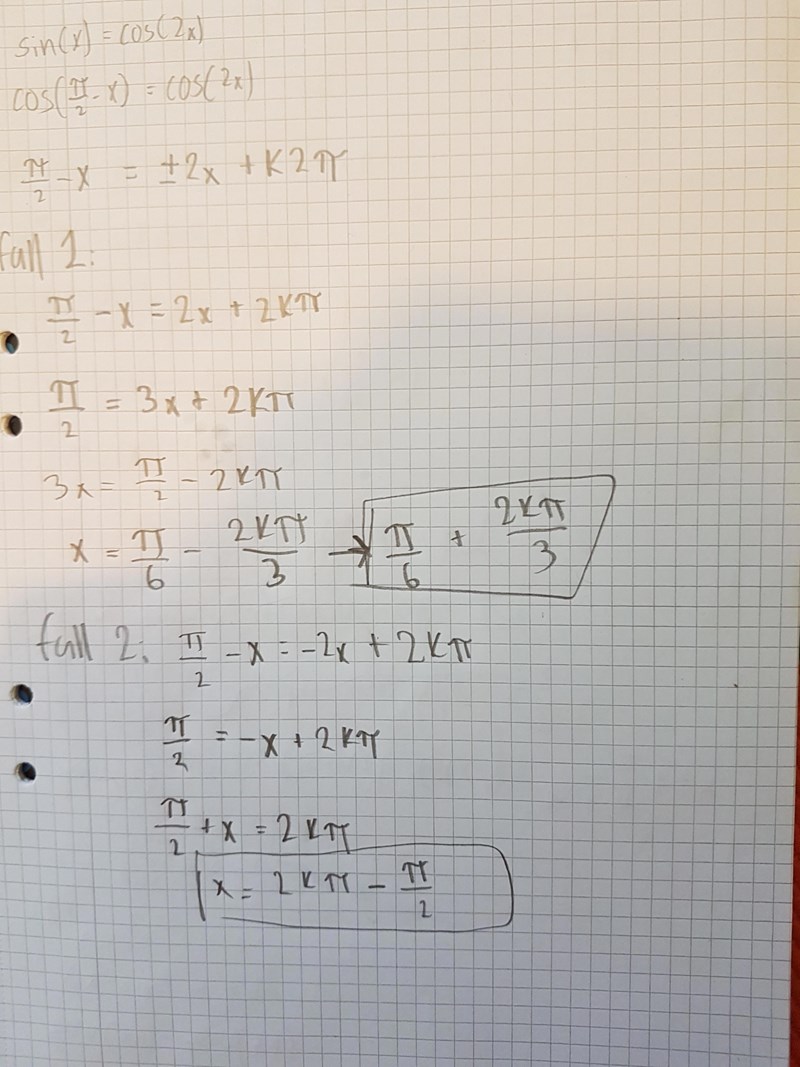 sin(x) = cos(2x)
cos(π/2 - x) = cos(2x)
π/2 - x = ±2x + K2π
fall 1:
π/2 - x = 2x + 2Kπ
π/2 = 3x + 2Kπ
3x = π/2 - 2Kπ
x = π/6 - 2Kπ/3 → π/6 + 2Kπ/3
fall 2: π/2 - x = -2x + 2Kπ
π/2 = -x + 2Kπ
π/2 + x = 2Kπ
x = 2Kπ - π/2